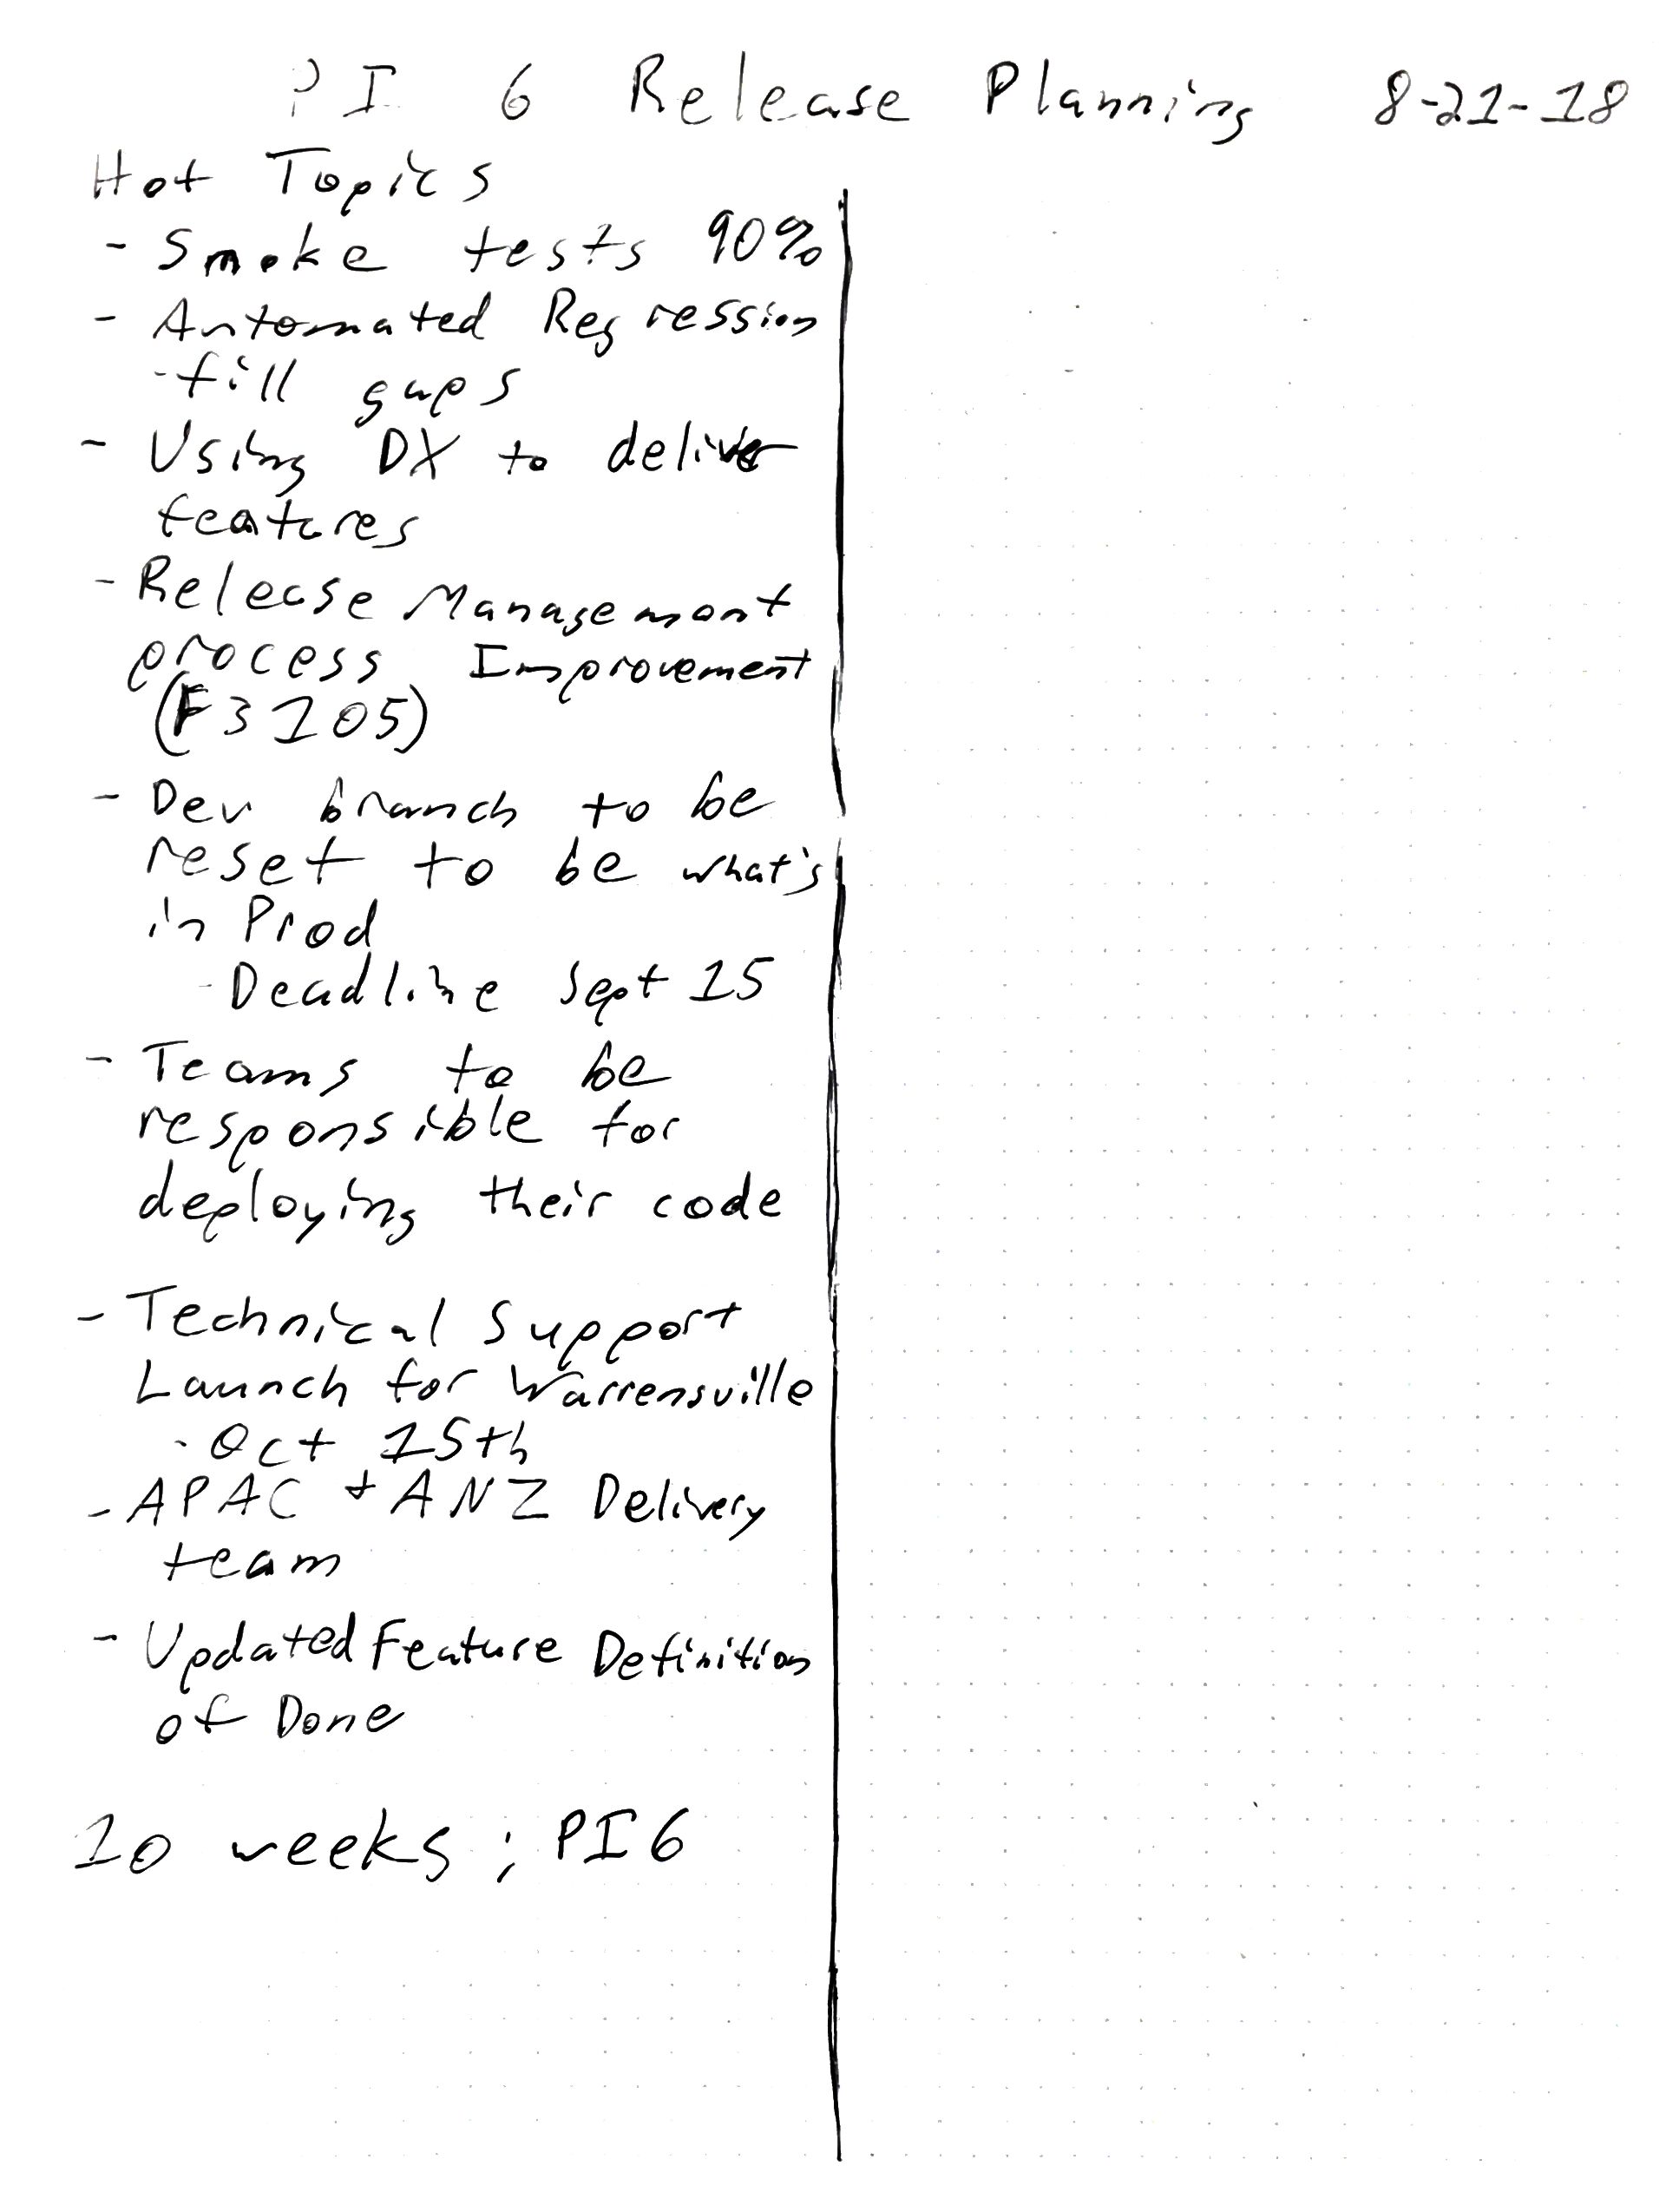 PI 6 Release Planning 8-21-18
Hot Topics
- Smoke tests 90%
- Automated Regression
- fill gaps
- Using DX to deliver
features
- Release Management
process Improvement
(F3105)
- Dev branch to be
reset to be what's
in Prod
- Deadline Sept 15
- Teams to be
responsible for
deploying their code
- Technical Support
Launch for Warrensville
- Oct 15th
- APAC + ANZ Delivery
team
- Updated Feature Definition
of Done
10 weeks ; PI6